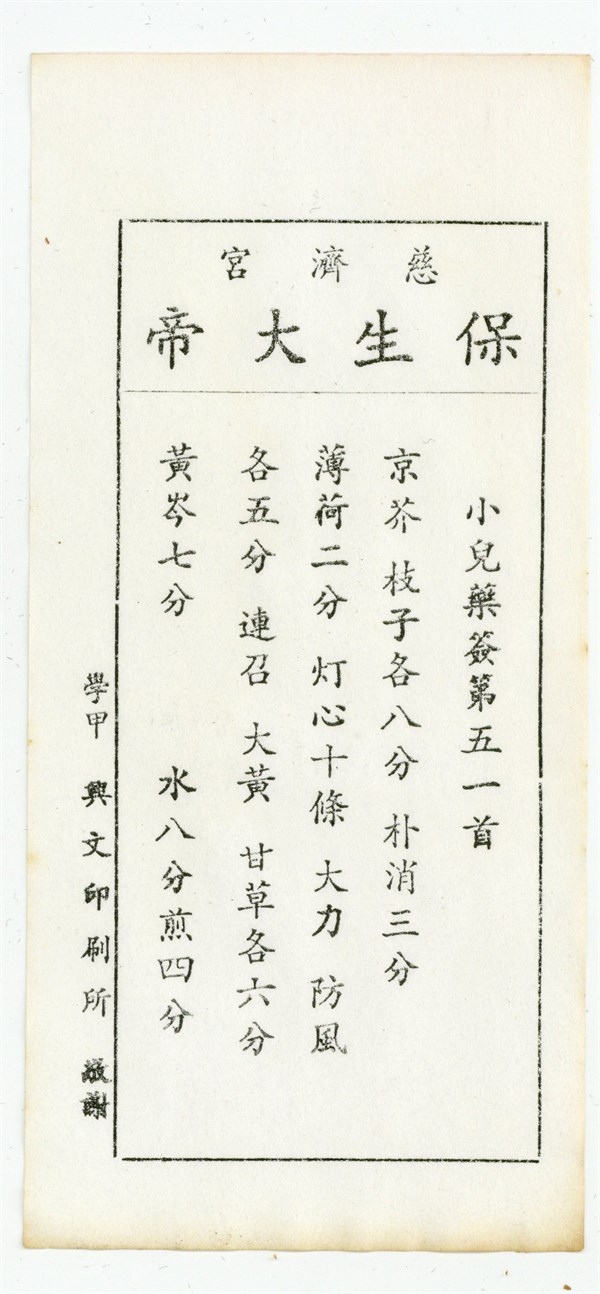 慈濟宮
保生大帝
小兒藥簽第五一首
京芥 枝子各八分 朴消三分
薄荷二分 灯心十條 大力 防風
各五分 連召 大黃 甘草各六分
黃岑七分 水八分煎四分
學甲 興文印刷所 敬謝